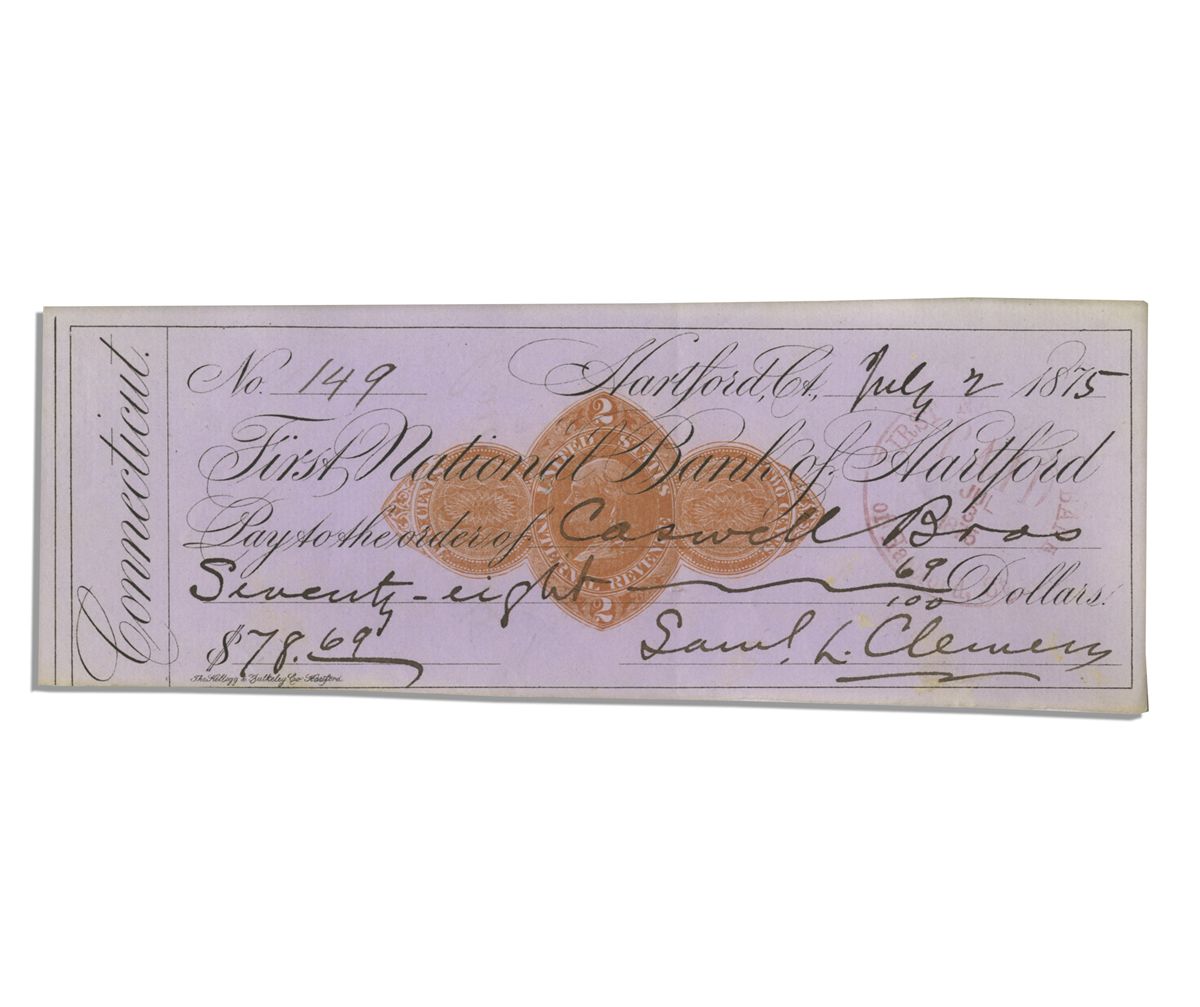 Connecticut.
No. 149 Hartford, Ct., July 2 1875
First National Bank of Hartford
Pay to the order of Caswell Bros
Seventy-eight 69/100 Dollars.
$78.69 Saml. L. Clemens
The Kellogg & Bulkeley Co. Hartford.
2
UNITED STATES
INTERNAL REVENUE
2
TWO CENTS